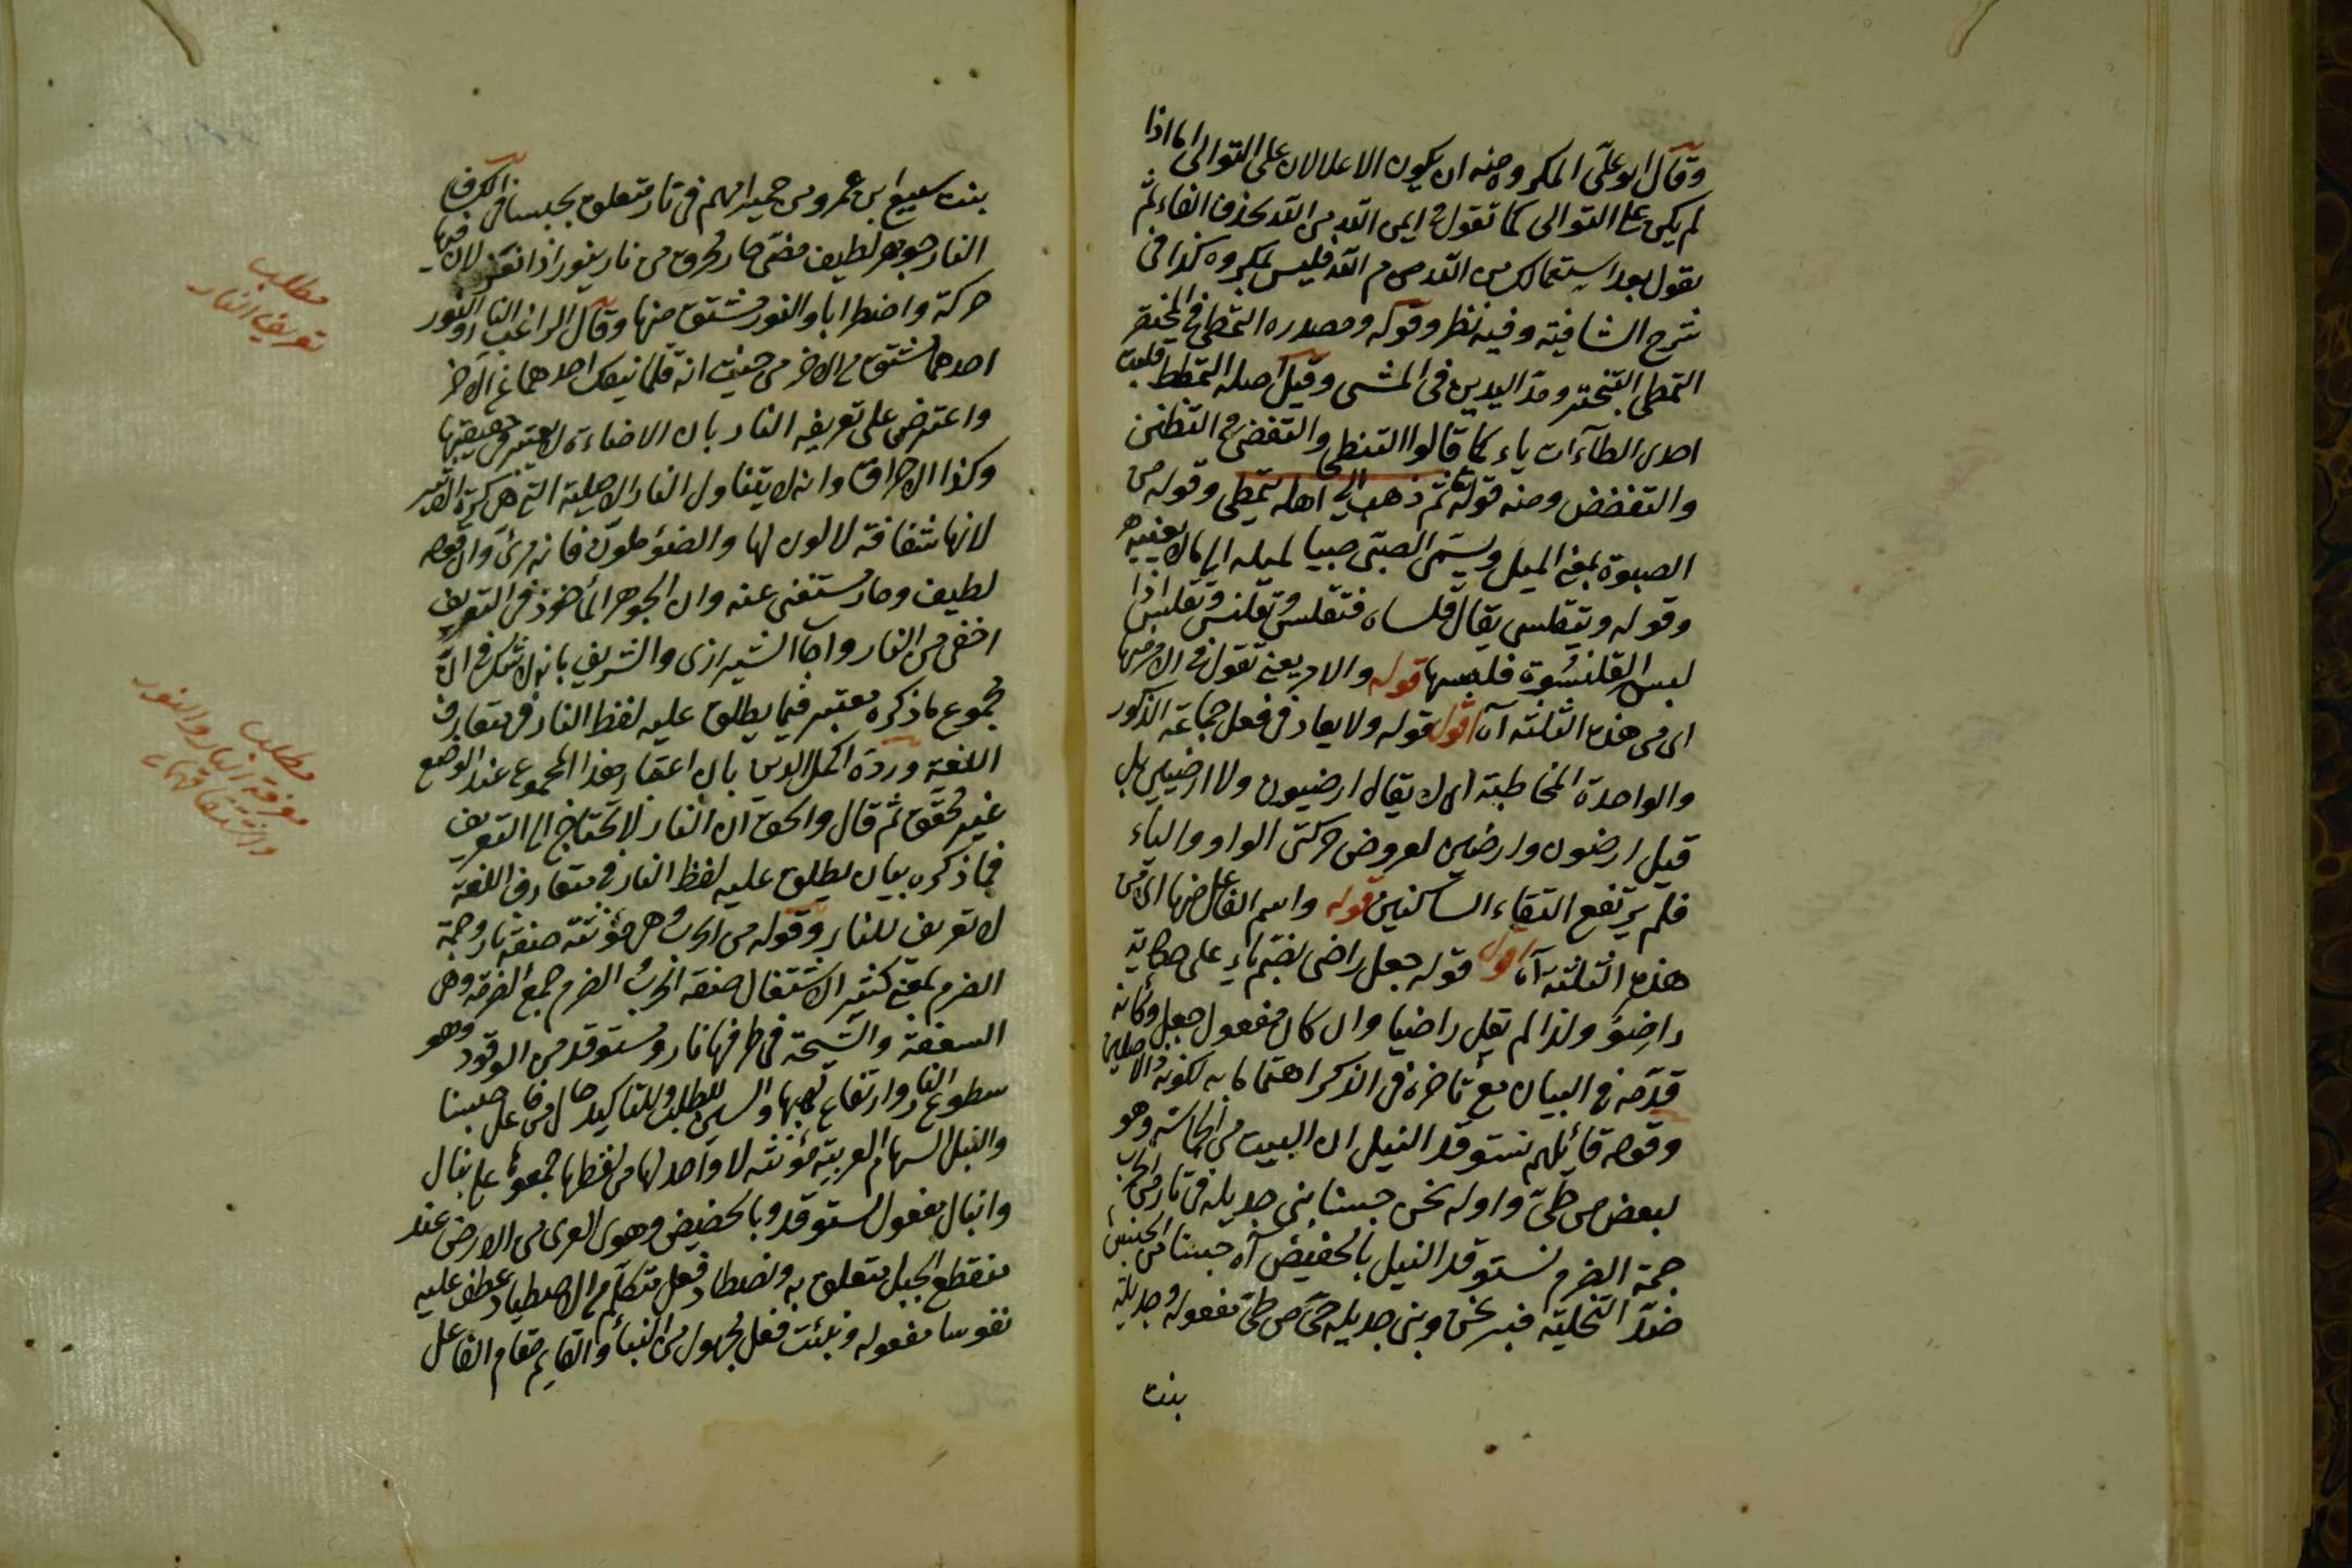 وقال ابو على المكروه منه ان يكون الاعلالان على التوالى اما اذا
لم يكن على التوالى كما تقول فى ايمن الله من الله بحذف الفاء ثم
تقول بعد استعمالك من الله م الله فليس بمكروه كذا فى
شرح الشافية وفيه نظر وقوله ومصدره التمطى فى المختصر
التمطى التبختر ومد اليدين فى المشى وقيل اصله التمطط قلبت
احدى الطاآت ياء كما قالوا التظنى والتقضى فى التظنن
والتقضض ومنه قوله تعالى ثم ذهب الى اهله يتمطى وقوله من
الصبوة بمعنى الميل ويسمى الصبى صبيا لميله الى ما لا يعنيه
وقوله ويتقلسى يقال قلساه فتقلسى وتقلنس وتقلبس اذا
لبس القلنسوة فلبسها قوله والامر يعنى تقول فى الامر منها
اى من هذه الثلثة آه اقول قوله ولا يعاد فى فعل جماعة الذكور
والواحدة المخاطبة اى لا يقال ارضيون ولا ارضيين بل
قيل ارضون وارضين لعروض حركتى الواو والياء
فلم يرتفع التقاء الساكنين قوله واسم الفاعل منها اى من
هذه الثلثة آه اقول قوله جعل راضى بضم ياء على حكاية
راضو ولذا لم يقل راضيا وان كان مفعول جعل وكأنه
قدمه فى البيان مع تأخره فى الذكر اهتماما به لكونه الاصلين
وقوله قائلهم نستوقد النبل ان البيت من الحماسة وهو
لبعض من طى واوله نحن حبسنا بنى جديلة فى نار من الحرب
جحمة الضرم نستوقد النبل بالحضيض آه حبسنا من الحبس
ضد التخلية خبر نحن وبنى جديلة حى من طى مفعوله وجديلة
بنت
بنت سبيع ابن عمرو من حمير امهم فى نار متعلق بحبسنا فى الكشاف
النار جوهر لطيف مضئ حار محرق من نار ينور اذا نفر لان فيها
حركة واضطرابا والنور مشتق منها وقال الراغب النار والنور
احدهما مشتق من الاخر من حيث انه قلما ينفك احدهما عن الآخر
واعترض على تعريف النار بان الاضاءة لا يعتبر فى حقيقتها
وكذا الاحراق وانه لا يتناول النار الاصلية التى هى كرة الاثير
لانها شفافة لا لون لها والضوء ملون فانه مرئى وان قوله
لطيف وحار مستغنى عنه وان الجوهر المأخوذ فى التعريف
اخفى من النار واجاب الشيرازى والشريف بانه لا شك فى ان
مجموع ما ذكره معتبر فيما يطلق عليه لفظ النار فى متعارف
اللغة ورده اكمل الدين بان اعتقاد هذا المجموع عند الوضع
غير محقق ثم قال والحق ان النار لا تحتاج الى التعريف
فما ذكره بيان لما يطلق عليه لفظ النار فى متعارف اللغة
لا تعريف للنار وقوله من الحرب وهى مؤنثة صفة نار وجحمة
الضرم بمعنى كثير الاشتعال صفة الحرب الضرم جمع الضرمة وهى
السعفة والشيحة فى طرفها نار ومستوقد من الوقود وهو
سطوع النار وارتفاع لهبها والسين للطلب وللتأكيد حال من فاعل حبسنا
والنبل السهام العربية مؤنثة لا واحد لها من لفظها جمعوها على نبال
وانبال مفعول نستوقد وبالحضيض وهو القرى من الارض عند
منقطع الجبل متعلق به ونصطاد فعل متكلم من الاصطياد عطف عليه
نفوسا مفعوله وبنت فعل مجهول من البناء والقايم مقام الفاعل
مطلب
تعريف النار
مطلب
معرفة النار والنور
واشتقاقهما